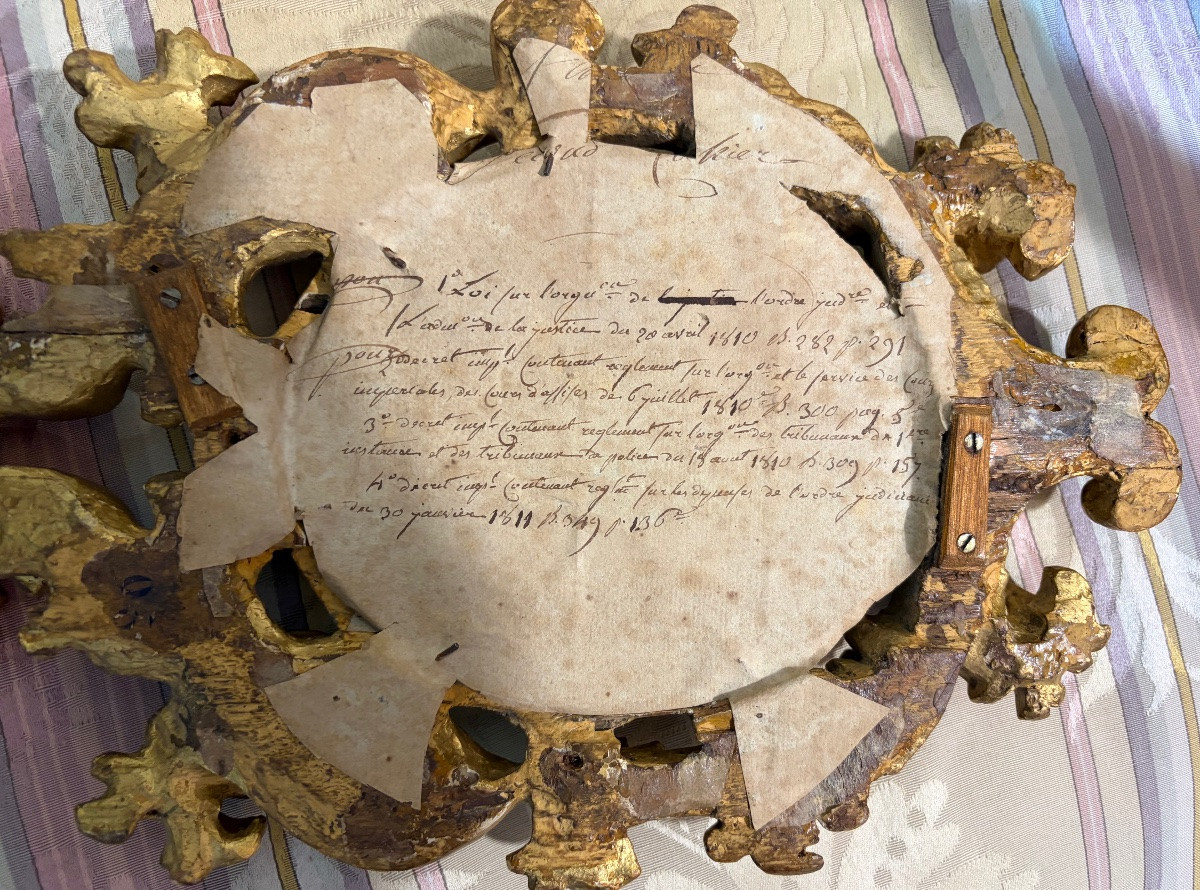 1° Loi sur l'orgu^on de l'ordre judre et
l'adm^on de la justice du 20 avril 1810 B. 282 p. 291
2° decret imp^l contenant reglement sur l'org^on et le service des Cours
imperiales, des Cours d'assises du 6 juillet 1810 B. 300 pag. 3
3° decret imp^l contenant reglement sur l'org^on des tribunaux de 1ere
instance et des tribunaux de police du 18 aout 1810 B. 309 p. 157
4° decret imp^l contenant regl^t sur les depenses de l'ordre judiciaire
du 30 janvier 1811 B. 349 p. 136